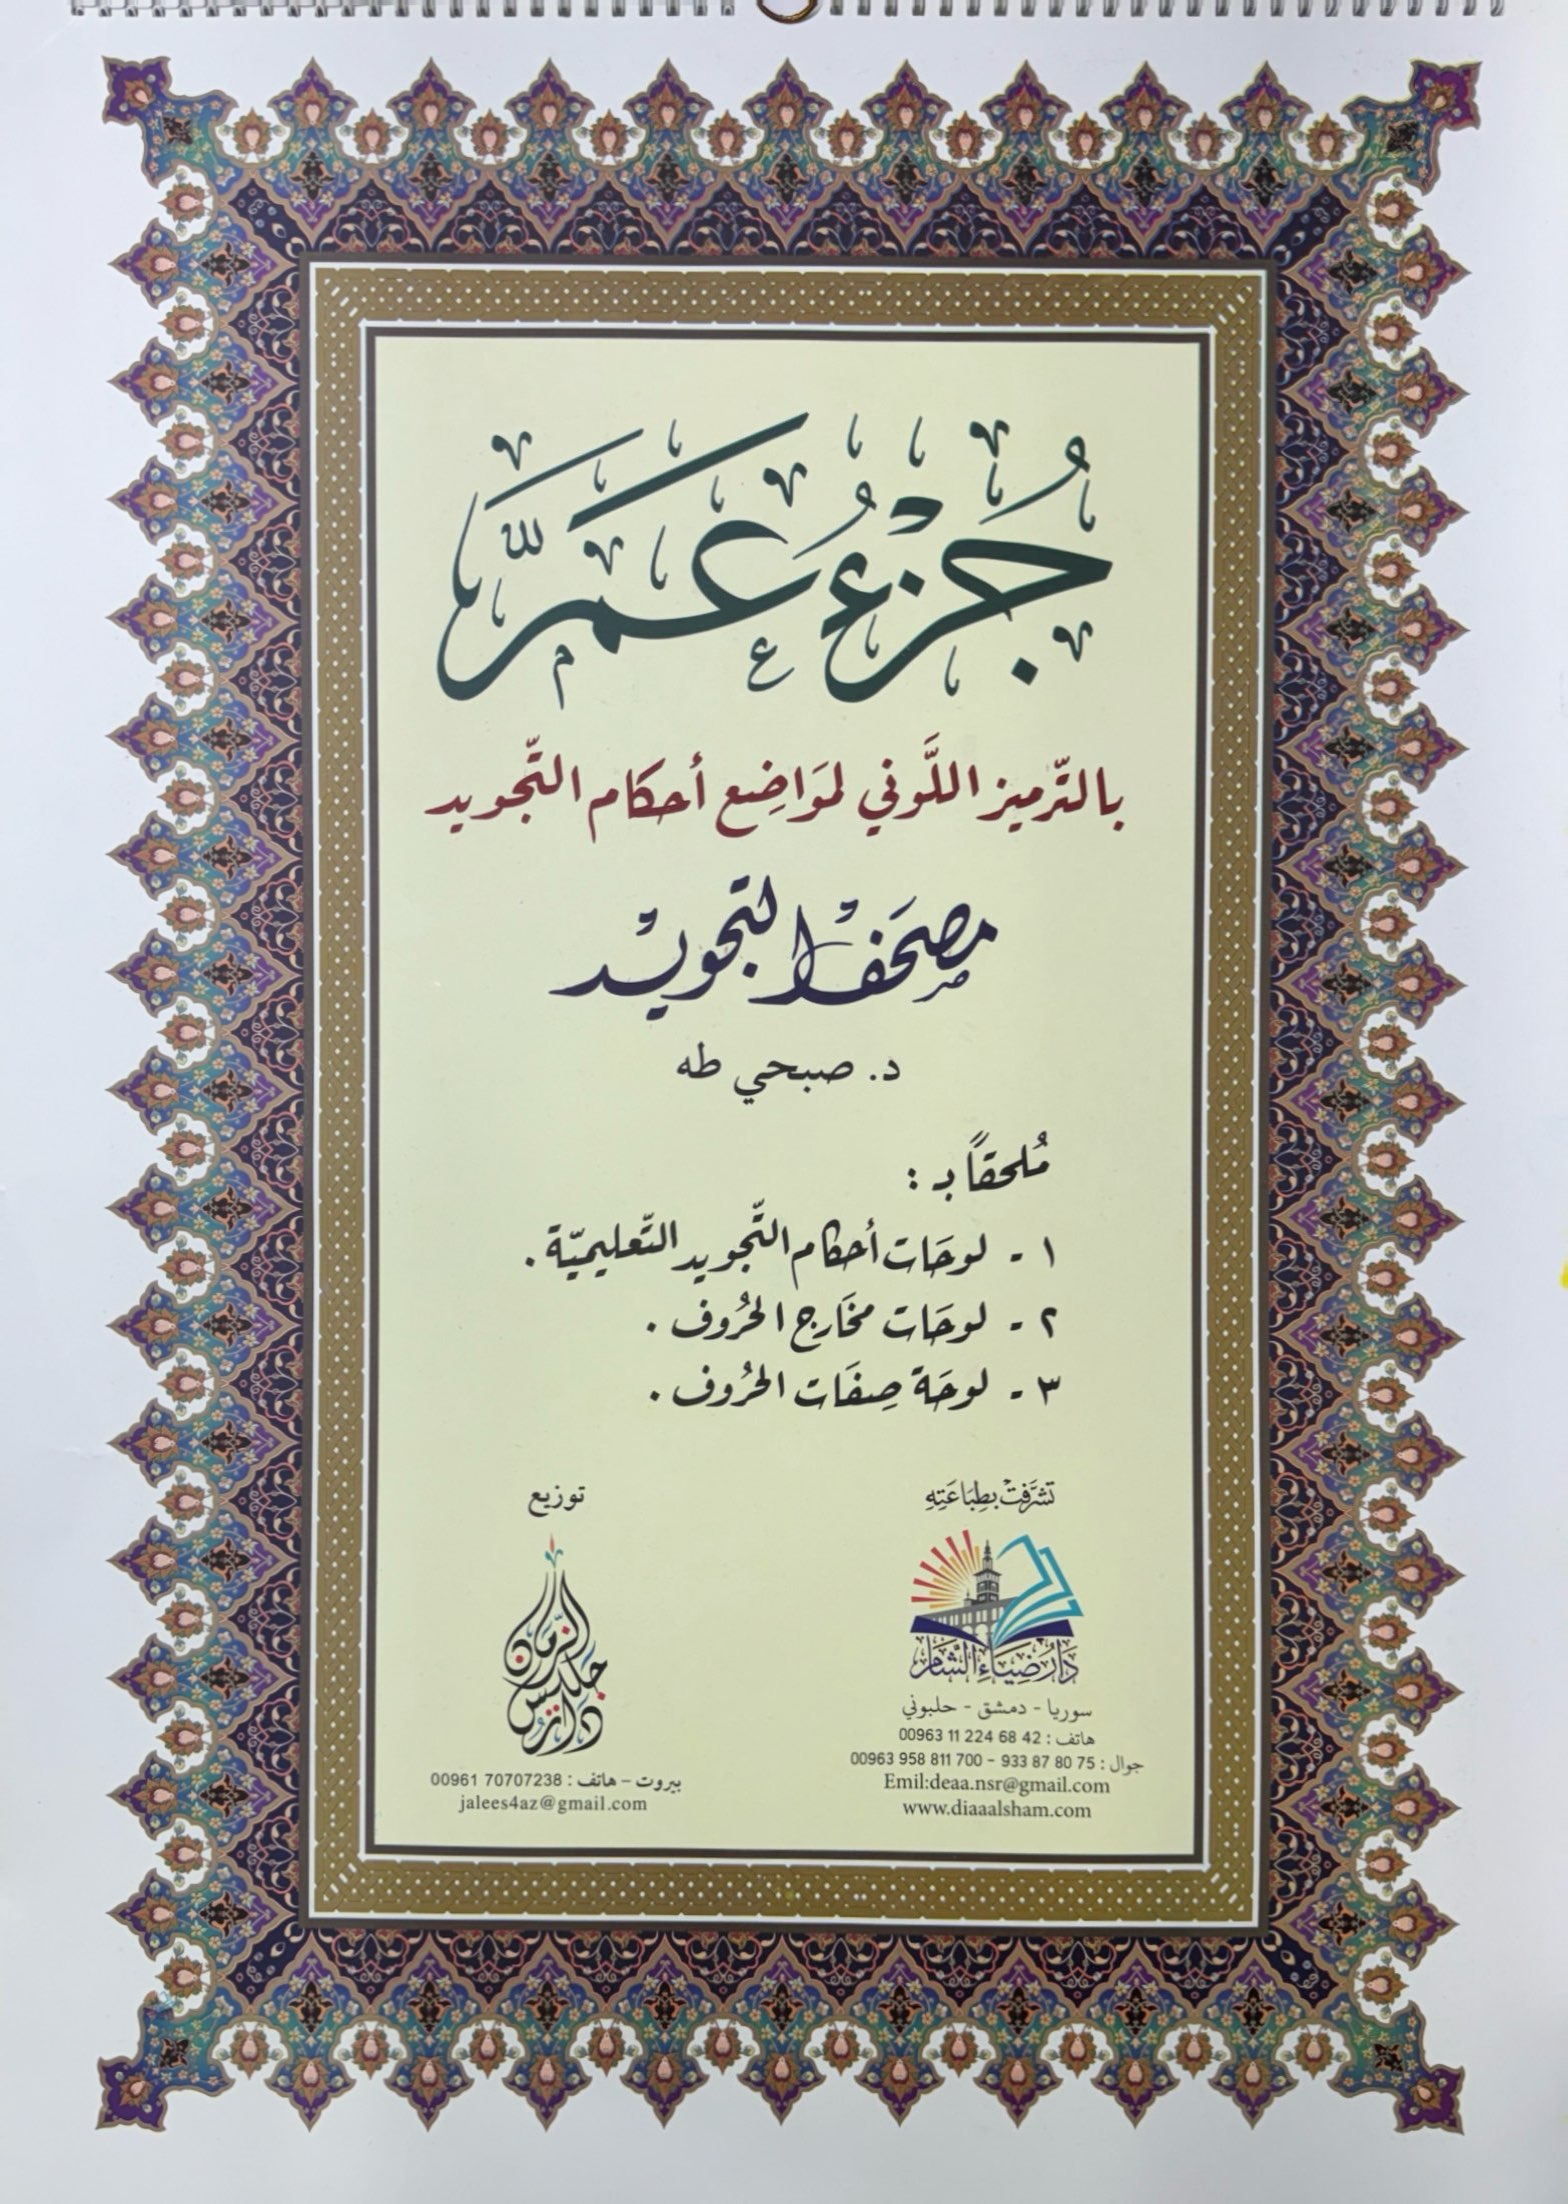 جُزْءُ عَمَّ
بالتّرميز اللَّوني لموَاضِع أحكام التّجويد
مصحَف التجويد
د. صبحي طه
مُلحقاً بـ :
١ - لوحَات أحكام التّجويد التّعليميّة .
٢ - لوحَات مخَارج الحُروف .
٣ - لوحَة صِفَات الحُروف .
تشرَّفتْ بطِبَاعَتِهِ
دَارُ ضِيَاءِ الشَّام
سوريا - دمشق - حلبوني
هاتف : 00963 11 224 68 42
جوال : 00963 958 811 700 - 933 87 80 75
Emil:deaa.nsr@gmail.com
www.diaaalsham.com
توزيع
دار جليس الزمان
بيروت - هاتف : 00961 70707238
jalees4az@gmail.com